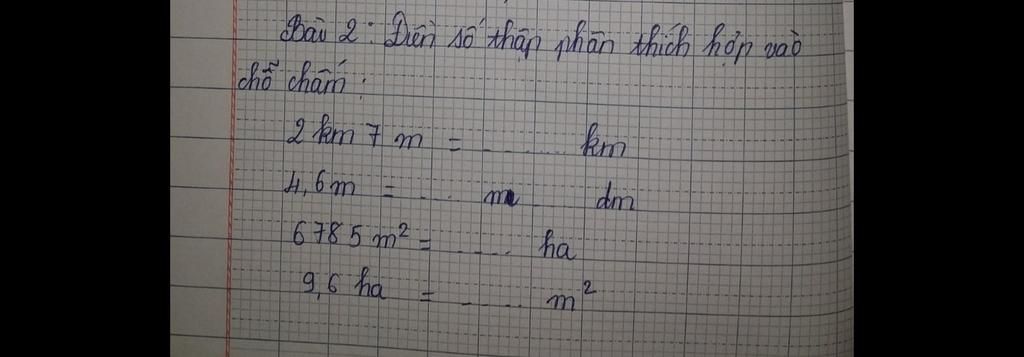 Bài 2: Điền số thập phân thích hợp vào
chỗ chấm:
2 km 7 m = ....... km
4,6m = .... m dm
6785 m² = ...... ha
9,6 ha = ...... m²